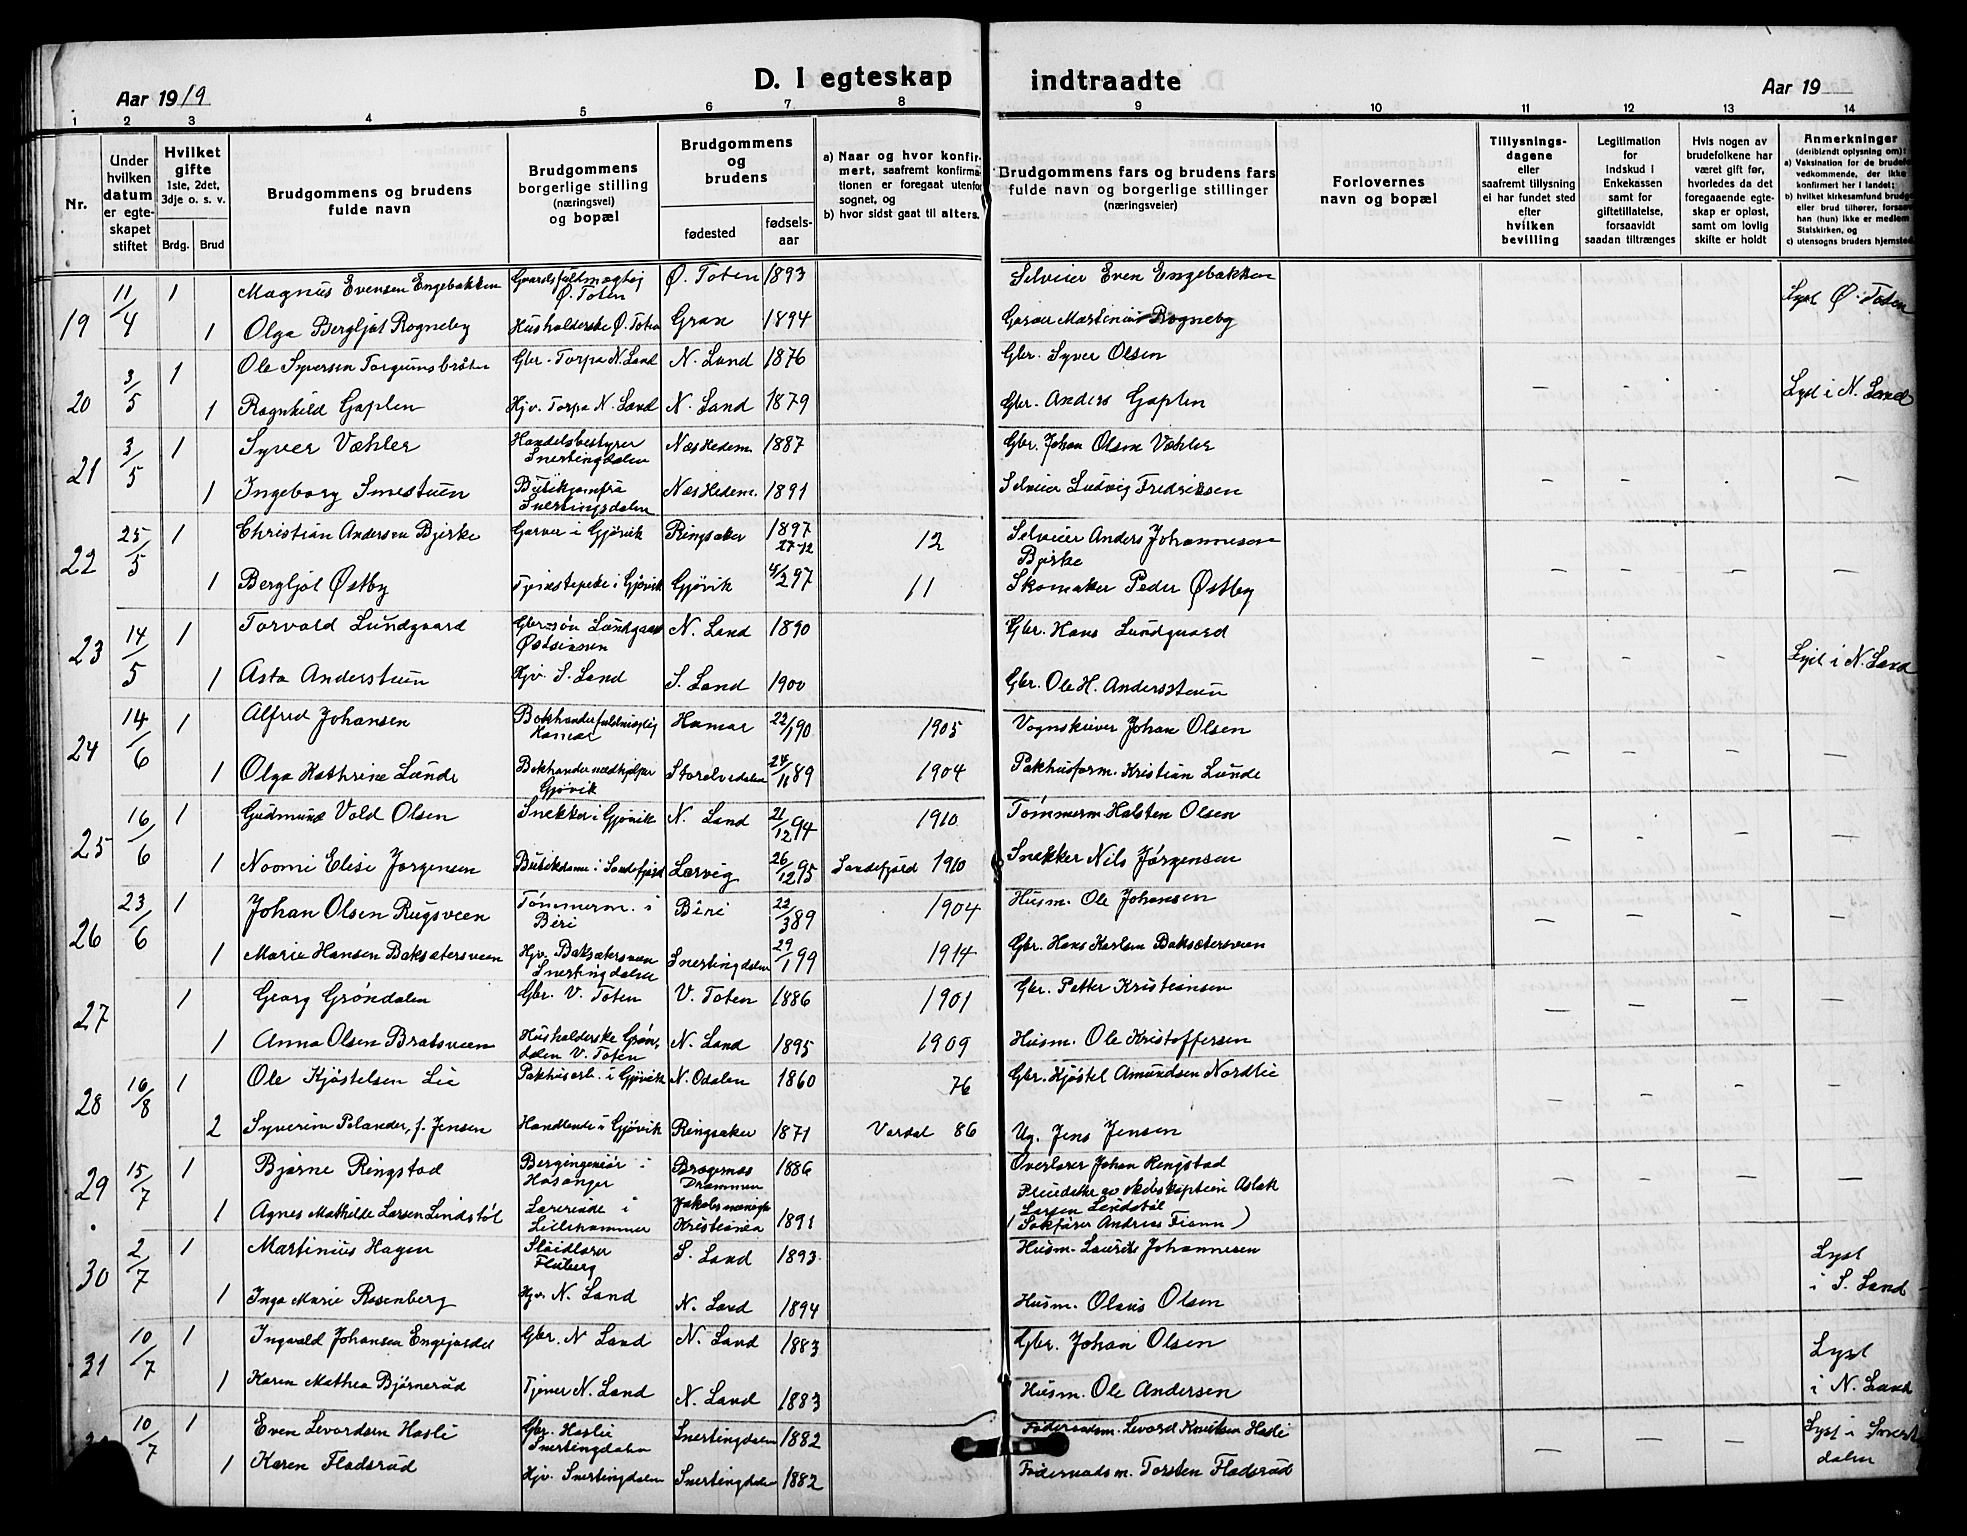 D. I egteskap indtraadte
Aar 1919
Aar 19
1 2 3 4 5 6 7 8 9 10 11 12 13 14
Nr.
Under hvilken datum er egteskapet stiftet
Hvilket gifte 1ste, 2det, 3dje o. s. v.
Brdg. Brud
Brudgommens og brudens fulde navn
Brudgommens borgerlige stilling (næringsvei) og bopæl
Brudgommens og brudens
fødested
fødsels-aar
a) Naar og hvor konfirmert, saafremt konfirmationen er foregaat utenfor sognet, og
b) hvor sidst gaat til alters.
Brudgommens fars og brudens fars fulde navn og borgerlige stillinger (næringsveier)
Forlovernes navn og bopæl
Tillysnings-dagene eller saafremt tillysning ei har fundet sted efter hvilken bevilling
Legitimation for Indskud i Enkekassen samt for giftetillatelse, forsaavidt saadan tiltrænges
Hvis nogen av brudefolkene har været gift før, hvorledes da det foregaaende egteskap er opløst, samt om lovlig skifte er holdt
Anmerkninger (deriblandt oplysning om):
a) Vaksination for de brudefo vedkommende, der ikke konfirmert her i landet;
b) hvilket kirkesamfund brudgo eller brud tilhører, forsaav han (hun) ikke er medlem Statskirken, og
c) utensogns bruders hjemsted
19 11/4 1 Magnus Evensen Engebakken Gaardsfuldmægtig Ø. Toten Ø. Toten 1893 Selveier Even Engebakken Lyst Ø. Toten
1 Olga Bergljot Rogneby Husholderske Ø. Toten Gran 1894 Garver Martinius Rogneby
20 3/5 1 Ole Syversen Torgunsbråten Gbr. Torpa N. Land N. Land 1876 Gbr. Syver Olsen — — — Lyst i N. Land
1 Ragnhild Gaplen Hjv. Torpa N. Land N. Land 1879 Gbr. Anders Gaplen
21 3/5 1 Syver Væhler Handelsbestyrer Snertingdalen Næs Hedem. 1887 Gbr. Johan Olsen Væhler — — — —
1 Ingeborg Smestuen Butikjomfru Snertingsdalen Næs Hedem. 1891 Selveier Ludvig Fredriksen
22 25/5 1 Christian Andersen Bjerke Garver i Gjøvik Ringsaker 1897 27-12 12 Selveier Anders Johannesen Bjerke — — — —
1 Bergljot Østby Gjøvik Gjøvik 4/2 97 11 Skomaker Peder Østby
23 14/5 1 Torvald Lundgaard Gbr.søn Lundgaard N. Land 1890 Gbr. Hans Lundgaard — — — Lyst i N. Land
1 Asta Anderstuen Hjv. S. Land S. Land 1900 Gbr. Ole H. Andersstuen
24 14/6 1 Alfred Johansen Hamar Hamar 22/1 90 1905 Vognskriver Johan Olsen — — — —
1 Olga Kathrine Lunde Gjøvik Storelvedalen 24/11 89 1904 Pakhusform. Kristian Lunde
25 16/6 1 Gudmund Vold Olsen Snekker i Gjøvik N. Land 21/12 94 1910 Tømmerm. Halsten Olsen — — — —
1 Noomi Elise Jørgensen Butikdame i Sandefjord Larvig 26/12 95 Sandefjord 1910 Snekker Nils Jørgensen
26 23/6 1 Johan Olsen Rugsveen Tømmerm. i Biri Biri 22/3 89 1904 Husm. Ole Johansen — — — —
1 Marie Hansen Baksætersveen Hjv. Baksætersveen Snertingdalen Snertingdalen 29/1 99 1914 Gbr. Hans Karlsen Baksætersveen
27 1 Georg Grøndalen Gbr. V. Toten V. Toten 1886 1901 Gbr. Petter Kristiansen — — — —
1 Anna Olsen Bratsveen Husholderske Grøndalen V. Toten N. Land 1895 1909 Husm. Ole Kristoffersen
28 16/8 1 Ole Kjøstelsen Lie Pakhusarb. i Gjøvik N. Odalen 1860 76 Gbr. Kjøstel Amundsen Nordlie — — — —
2 Syverine Pelander, f. Jensen Handlende i Gjøvik Ringsaker 1871 Vardal 86 Ug. Jens Jensen
29 15/7 1 Bjarne Ringstad Bergingeniør i Hosanger Bragernæs Drammen 1886 Overlærer Johan Ringstad — — — —
1 Agnes Mathilde Larsen Lindstøl Lærerinde i Lillehammer Jakobs menigh. Kristiania 1891 Pleiedatter av skibskaptein Aslak Larsen Lindstøl
( Sakfører Andreas )
30 2/7 1 Martinius Hagen Sløidlærer Fluberg S. Land 1893 Husm. Laurits Johannesen Lyst i S. Land
1 Inga Marie Rosenberg Hjv. N. Land N. Land 1894 Husm. Olaus Olsen
31 10/7 1 Ingvald Johansen Engejordet Gbr. N Land N. Land 1883 Gbr. Johan Olsen Lyst i N. Land
1 Karen Mathea Bjørnerud Tjener N. Land N. Land 1883 Husm. Ole Andersen
10/7 1 Even Levordsen Hasli Gbr. Haslie Snertingdalen Snertingdalen 1882 Føderaadsm. Levord Knutsen Haslie — — — Lyst i Snert dalen
1 Karen Fladsrud Hjv. Snertingdalen Snertingdalen 1882 Føderaadsm. Torsten Fladsrud